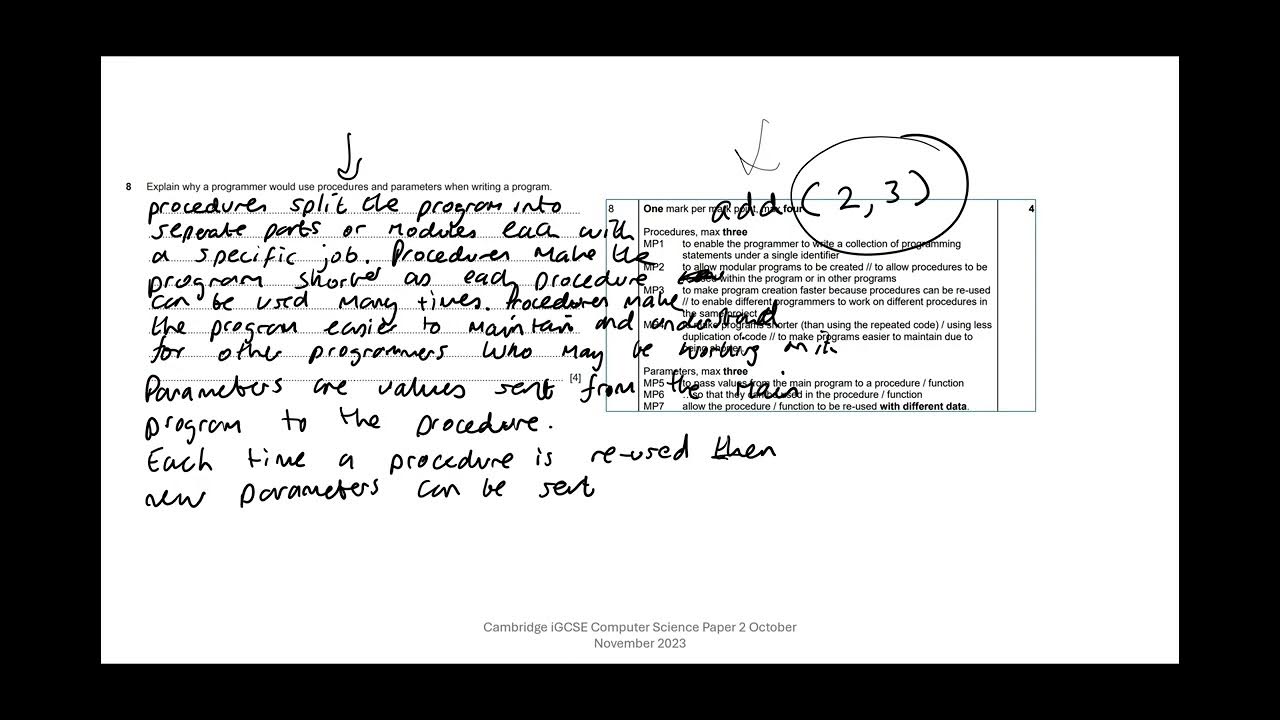 8 Explain why a programmer would use procedures and parameters when writing a program.
procedures split the program into
seperate parts or modules each with
a specific job. Procedures make the
program shorter as each procedure
can be used many times. Procedures make
the program easier to maintain and understand
for other programmers who may be working on it.
[4]
Parameters are values sent from the main
program to the procedure.
Each time a procedure is re-used then
new parameters can be sent
add (2,3)
8 One mark per mark point, max four 4
Procedures, max three
MP1 to enable the programmer to write a collection of programming
statements under a single identifier
MP2 to allow modular programs to be created // to allow procedures to be
within the program or in other programs
MP3 to make program creation faster because procedures can be re-used
// to enable different programmers to work on different procedures in
the same project
to make programs shorter (than using the repeated code) / using less
duplication of code // to make programs easier to maintain due to
Parameters, max three
MP5 to pass values from the main program to a procedure / function
MP6 so that they can be used in the procedure / function
MP7 allow the procedure / function to be re-used with different data.
Cambridge iGCSE Computer Science Paper 2 October
November 2023